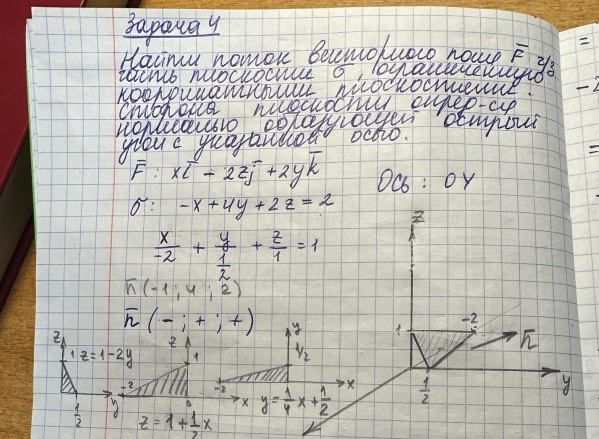 Задача 4
Найти поток векторного поля F̅ ч/з
часть плоскости б, ограниченную
координатными плоскостями.
Сторона плоскости опред-ся
нормалью образующей острый
угол с указанной осью.
F̅ : xi̅ - 2zj̅ + 2yk̅
Ось : OY
б: -x + 4y + 2z = 2
x/-2 + y/(1/2) + z/1 = 1
n̅ (-1 ; 4 ; 2)
n̅ (- ; + ; +)
z
1
-2
n̅
1/2
y
z
1
z = 1 - 2y
1/2
y
z
1
-2
0
x
z = 1 + 1/2 x
y
1/2
-2
x
y = 1/4 x + 1/2
=
- 2
=